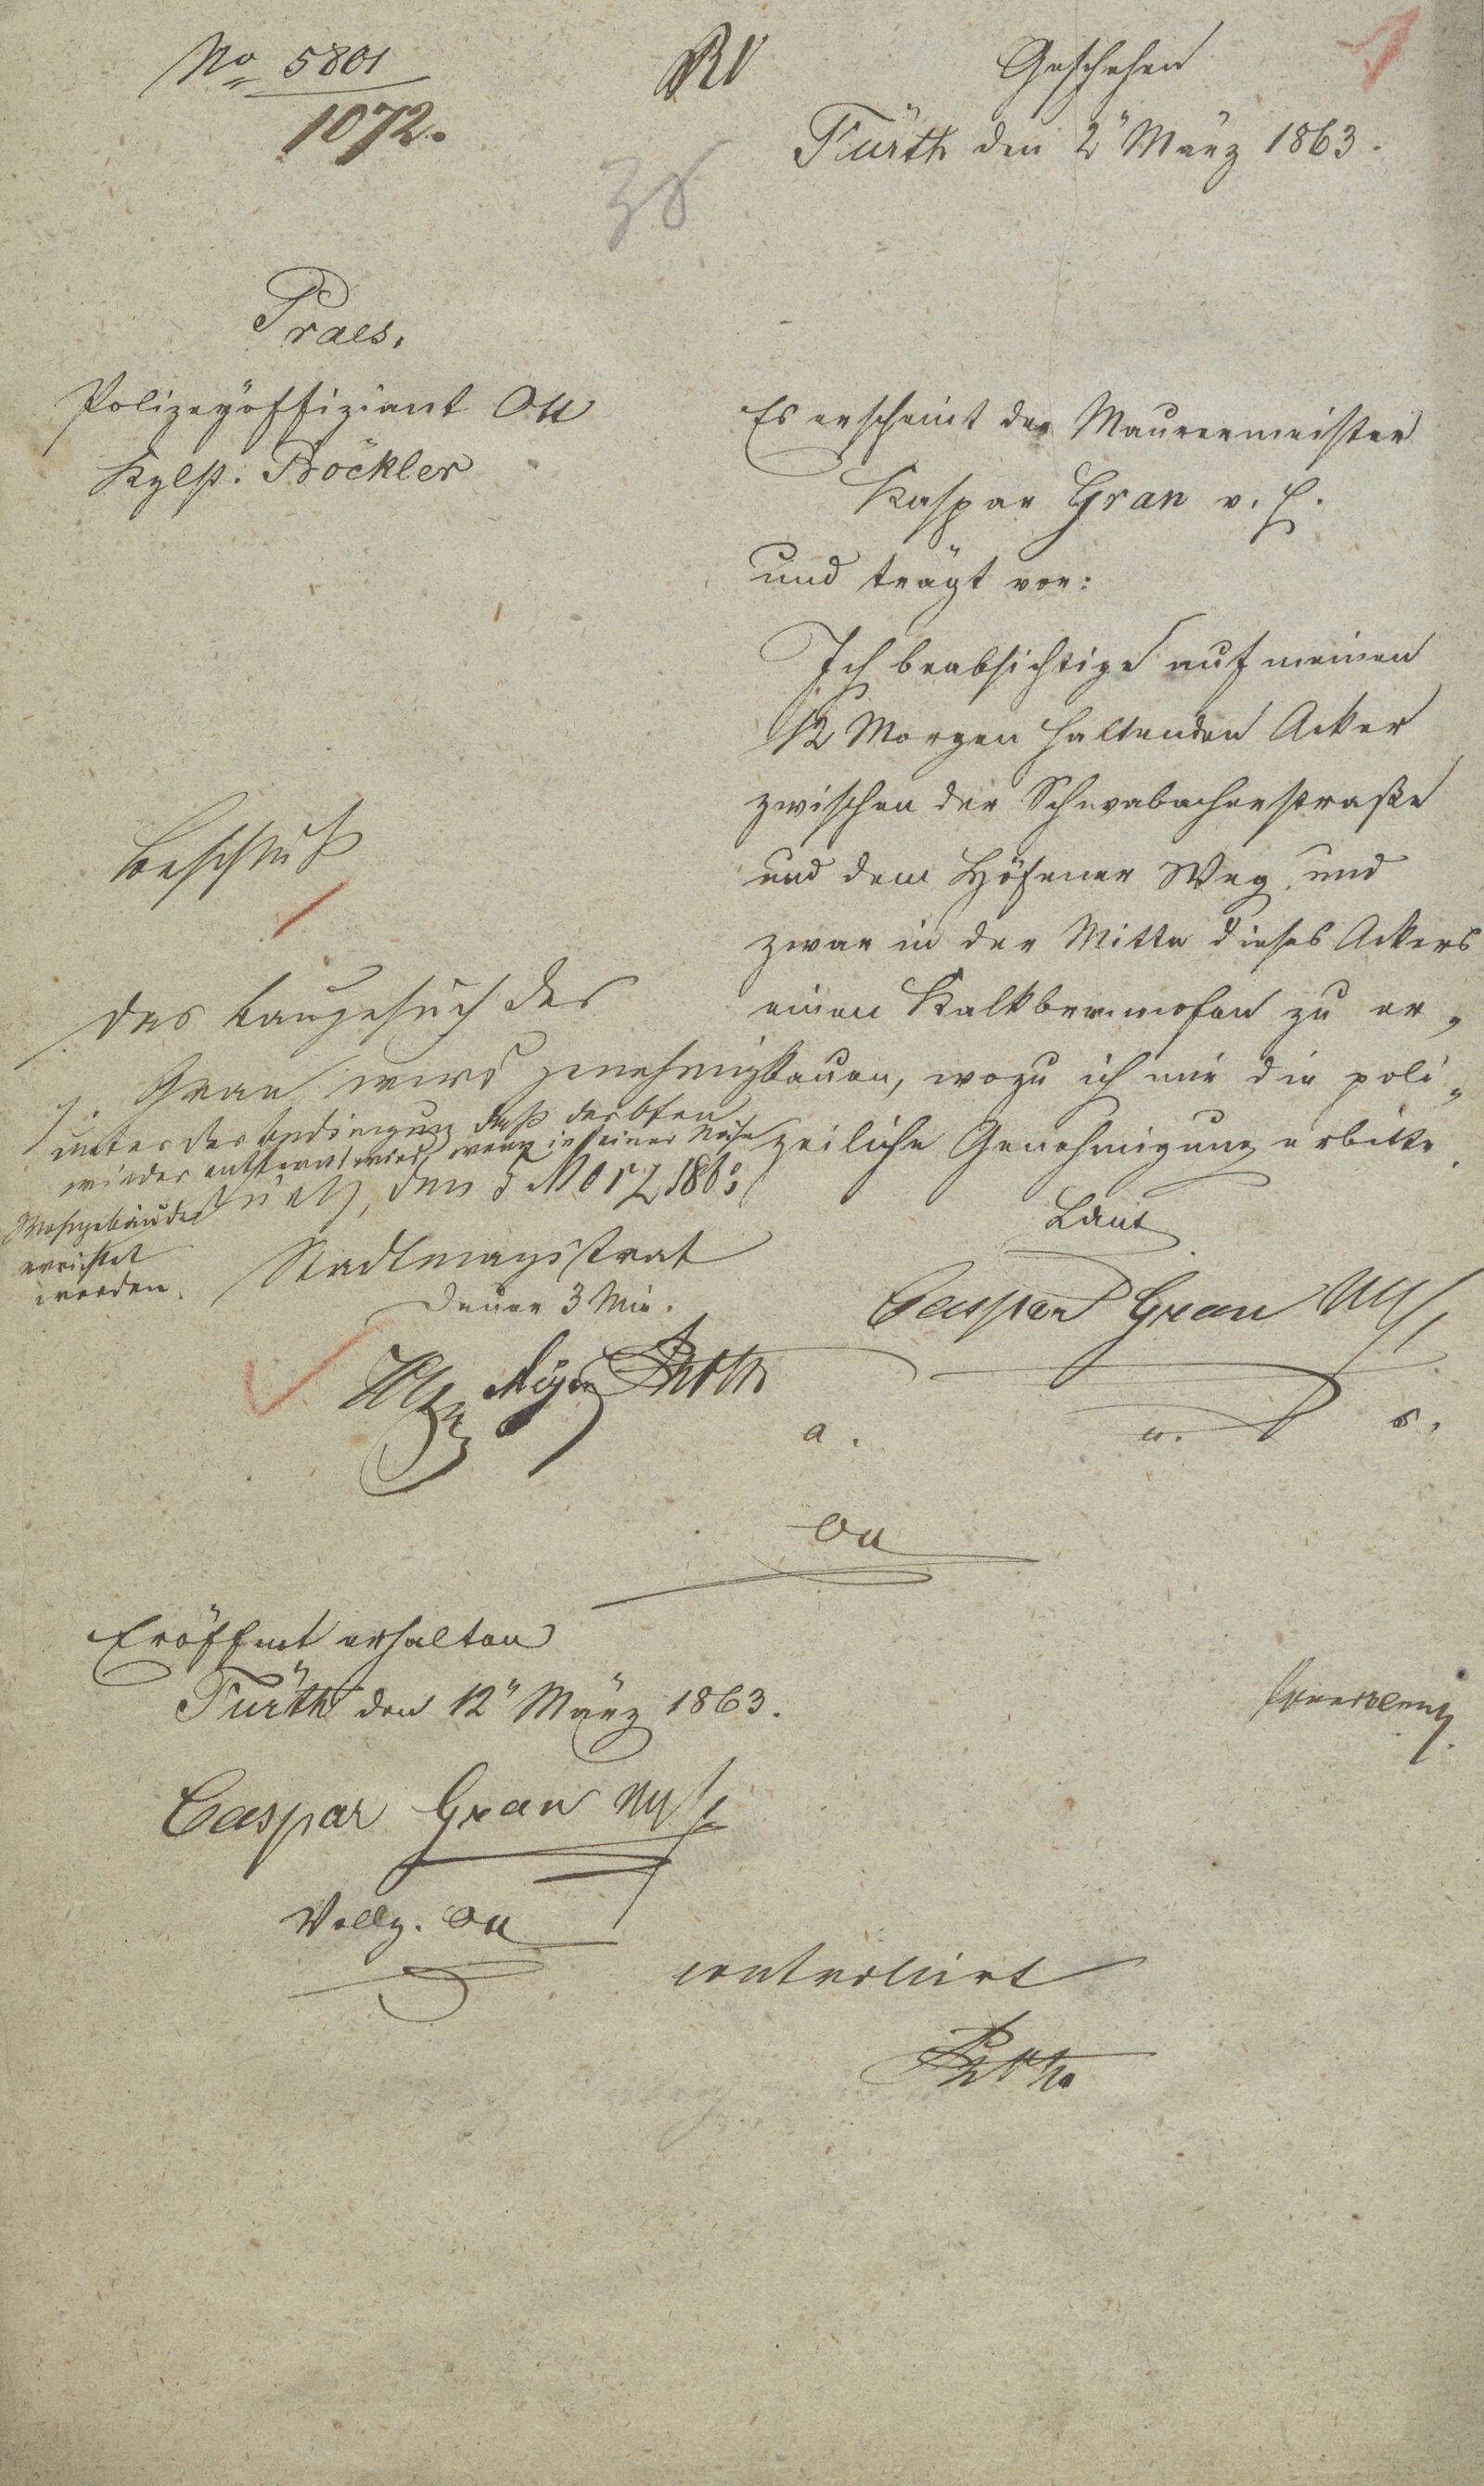 No 5801
1072.
RV
38
Geschehen
Fürth den 2" März 1863.
Praes.
Polizeyoffiziant Ott
Kzlst. Böckler
Es erscheint der Maurermeister
Kaspar Gran v. h.
und trägt vor:
Ich beabsichtige auf meinen
12 Morgen haltenden Acker
zwischen der Schwabacherstraße
und dem Höfener Weg, und
zwar in der Mitte dieses Ackers
einen Kalkbrennofen zu er„
bauen, wozu ich mir die poli„
zeiliche Genehmigung erbitte.
Laut
Caspar Gran
a. u. s.
Ott
Beschluß
Das Baugesuch des
p. Gran wird genehmigt
unter der Bedingung daß der Ofen
wieder entfernt wird, wenn in seiner Nähe
Wohngebäude
errichtet
werden.
Fürth, den 5 März 1863
Stadtmagistrat
Dauer 3 Min.
Eröffnet erhalten
Fürth den 12" März 1863.
Caspar Gran
Vollz. Ott
controllirt